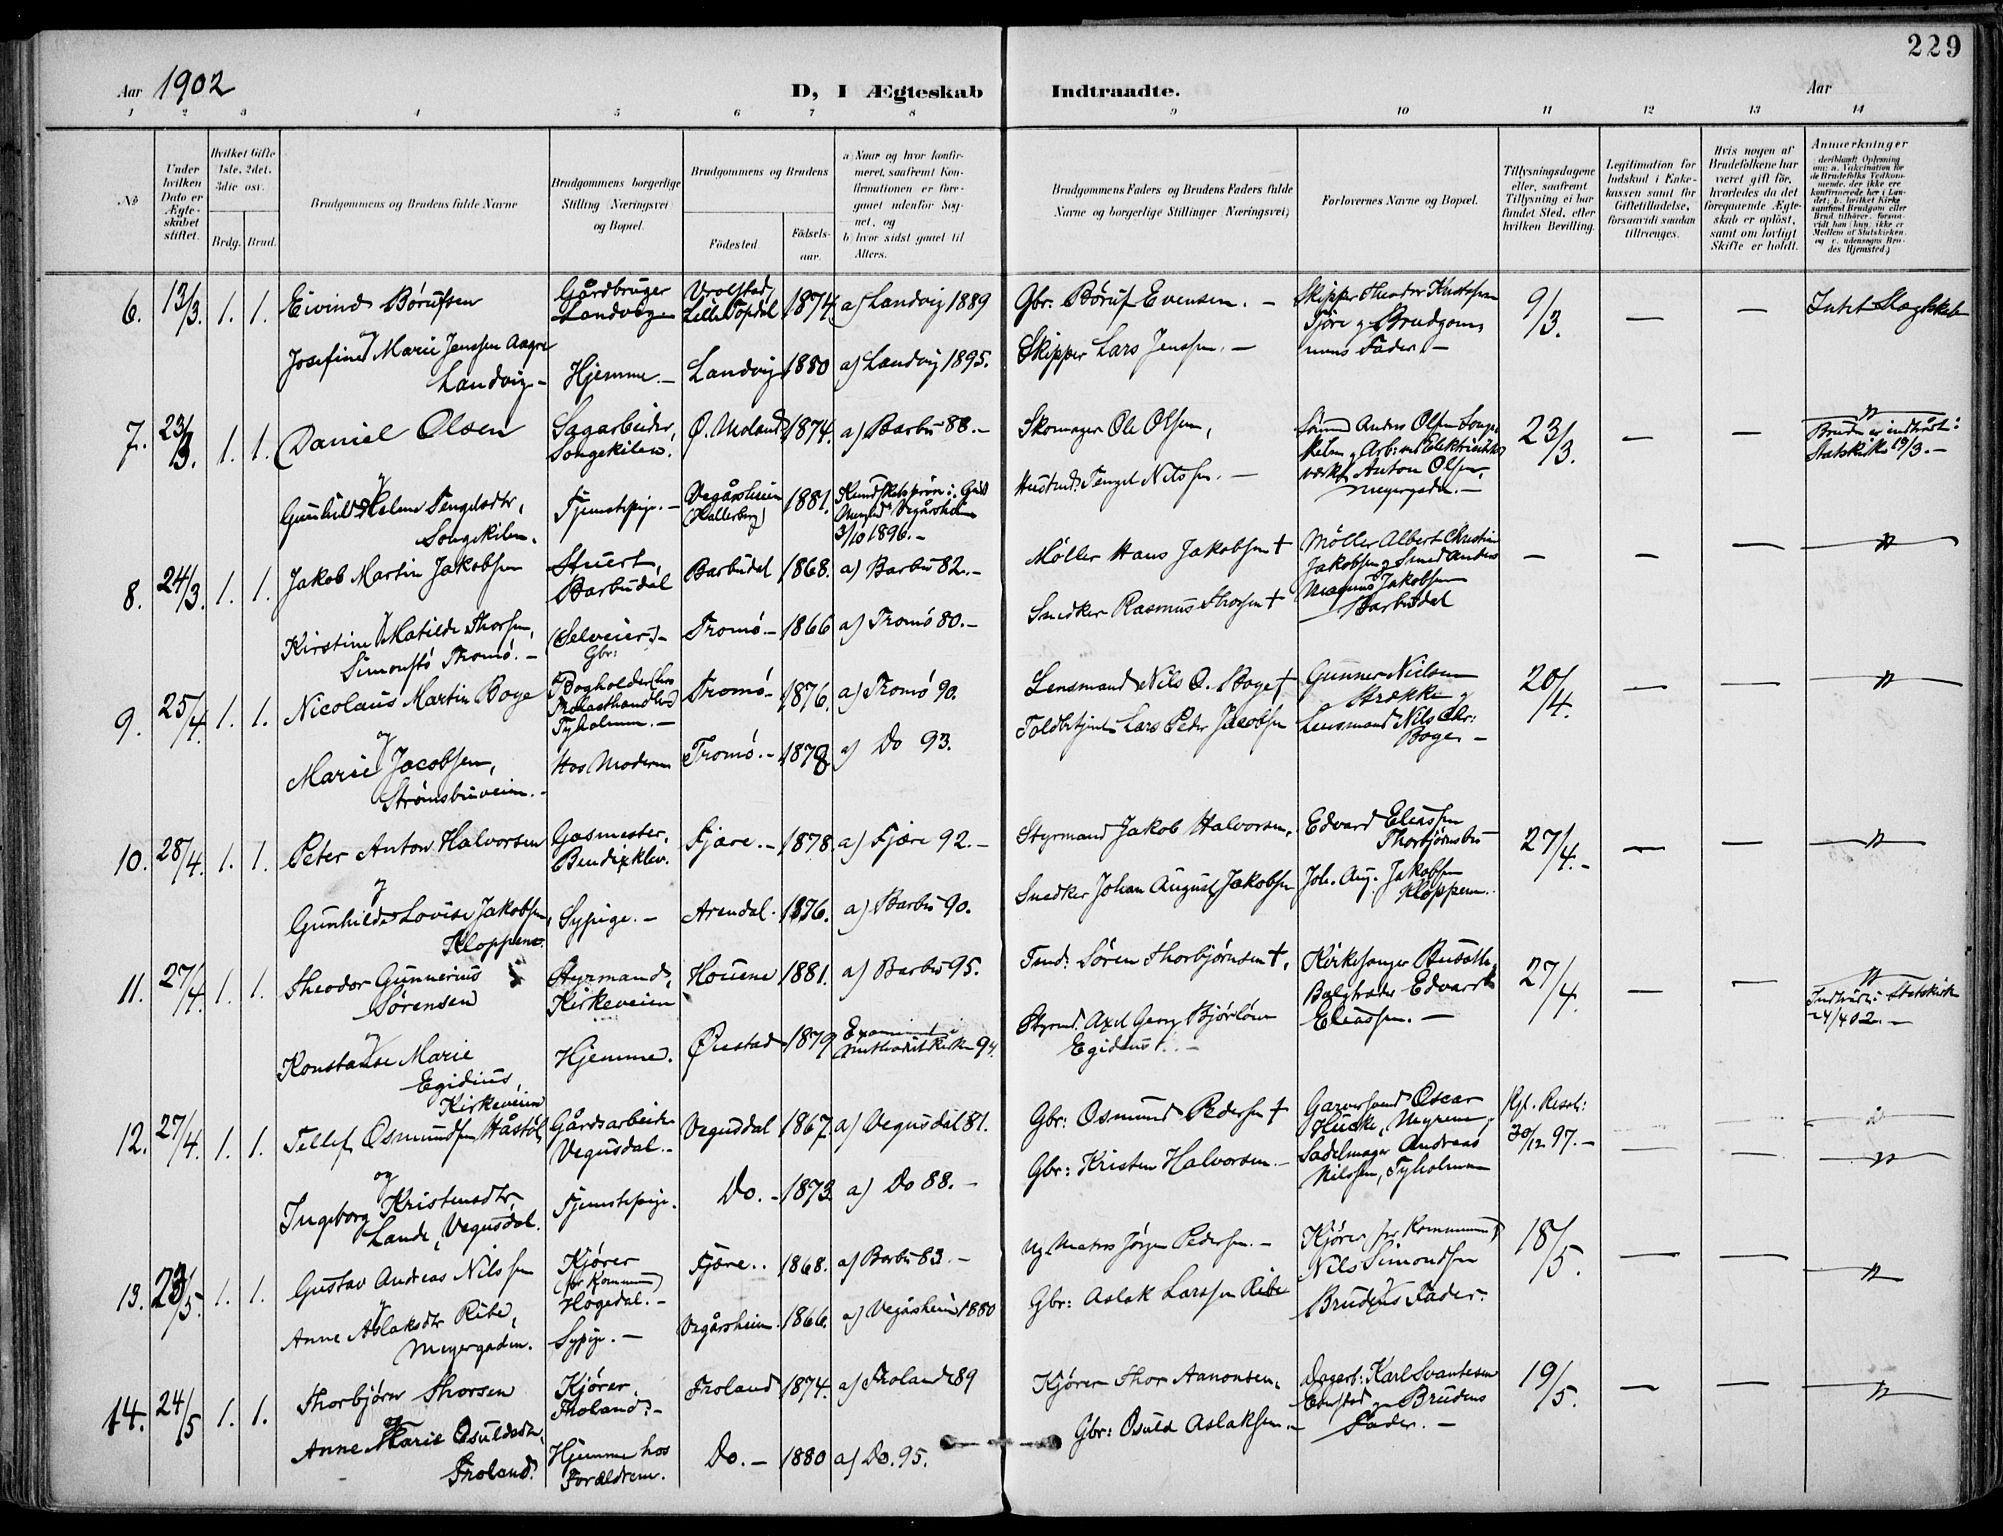 229
Aar 1902
D, I Ægteskab Indtraadte.
Aar
1 2 3 4 5 6 7 8 9 10 11 12 13 14
No
Under hvilken Dato er Ægteskabet stiftet.
Hvilket Gifte 1ste, 2det, 3die osv.
Brdg. Brud.
Brudgommens og Brudens fulde Navne
Brudgommens borgerlige Stilling Næringsvei og Bopæl.
Brudgommens og Brudens
Fødested
Fødselsaar.
a) Naar og hvor konfirmeret, saafremt Konfirmationen er foregaaet udenfor Sognet, og
b) hvor sidst gaaet til Alters.
Brudgommens Faders og Brudens Faders fulde Navne og borgerlige Stillinger Næringsvei)
Forlovernes Navne og Bopæl.
Tillysningsdagene eller, saafremt Tillysning ei har fundet Sted, efter hvilken Bevilling.
Legitimation for Indskud i Enkekassen samt for Giftetilladelse, forsaavidt saadan tiltrænges.
Hvis nogen af Brudefolkene har været gift før, hvorledes da det foregaaende Ægteskab er opløst, samt om lovligt Skifte er holdt.
Anmærkninger
6. 13/3. 1. 1. Eivind Børufsen
Gårdbruger
Landvig
Lille Topdal 1874 a) Landvig 1889
Gbr: Børuf Evensen. –
Skipper Theodor
Fjære og Brudgommens Fader. –
9/3. — —
Intet Slægtskab
og
Josefine Marie Jenssen Aagre
Landvig –
Hjemme. – Landvig 1880 a) Landvig 1895.
Skipper Lars Jenssen. –
7. 23/3. 1. 1. Daniel Olsen
Sagarbeider,
Songekilen.
Ø. Moland 1874. a) Barbu 88. –
Skomager Ole Olsen,
Anders Olsen
Anton Olsen,
Meyergaden. –
23/3. — —
"
Bruden er indtrådt i
Statskirken 19/3. –
og
Gunhild Helene Tengelsdtr,
Songekilen.
Tjenestepige. –
Vegårsheien 1881.
3/10 1896. –
Tengel Nilssen. –
8. 24/3. 1. 1. Jakob Martin Jakobsen
Stuert,
Barbudal
Barbudal 1868. a) Barbu 82. –
Møller Hans Jakobsen †
Møller Albert Christian
Jakobsen og Smed Anders
Magnus Jakobsen
Barbudal
— — — "
og
Kirstine Matilde Thorsen,
Simonstø Tromø. –
(Selveier) –
Gbr:
Tromø – 1866 a) Tromø 80. –
Snedker Rasmus Thorsen †
9. 25/4. 1. 1. Nicolaus Martin Boge
Bogholder (hos
Tyholmen. –
Tromø – 1876. a) Tromø 90.
Lensmand Nils O. Boge †
Gunner Nielsen
Strække og
Lensmand Nils Chr:
Boge –
20/4. — — "
og
Marie Jacobsen,
Strømsbuveien. –
Hos Moderen Tromø. – 1878 a) Do 93.
Toldbetjent Lars Peder Jacobsen
10. 28/4. 1. 1. Peter Anton Halvorsen
Gasmester,
Bendixklev.
Fjære. – 1878. a) Fjære 92. –
Styrmand Jakob Halvorsen,
Edvard Eliassen
Thorbjørnsbu
27/4. – — — "
og
Gunhild Lovise Jakobsen,
Kloppene.
Sypige. – Arendal. 1876. a) Barbu 90.
Snedker Johan August Jakobsen
Joh. Aug. Jakobsen
Kloppene.
11. 27/4. 1. 1. Theodor Gunnerius
Sørensen
Styrmand,
Kirkeveien
Houene 1881. a) Barbu 95.
Tmd: Søren Thorbjørnsen †,
Kirkesanger
Balgtræder Edvard
Eliassen. –
27/4. — —
"
Indtråd i Statskirken
–4/4 02. –
og
Konstanse Marie
Egidius,
Kirkeveien
Hjemme. Øiestad 1879 Examineret i
Methodistkirken 94.
Styrmd. Axel Georg
Egidius. –
12. 27/4. 1. 1. Tellef Osmundsen Håstøl
Gårdsarbeider
Vegusdal. –
Vegusdal 1867. a) Vegusdal 81.
Gbr: Osmund Pedersen †
Garversvend Oscar
Sadelmager Andreas
Nilssen, Tyholmen
Kgl. Resol:
30/12 97. –
— — "
og
Ingeborg Kristensdtr,
Lande, Vegusdal.
Tjenestepige. Do. – 1873 a) Do 88. –
Gbr: Kristen Halvorsen. –
13. 23/5. 1. 1. Gustav Andreas Nilssen
Kjører
(for Kommunen)
Høgedal. –
Fjære. . 1868. a) Barbu 83. –
Ug. Matros Jørgen Pedersen. –
Kjører for Kommunen
Nils Simondsen
Brudens Fader.
18/5. — — "
og
Anne Aslaksdtr Ribe,
Meyergaden.
Sypige. – Vegårsheien. 1866. a) Vegårsheien 1880
Gbr: Aslak Larssen Ribe
14. 24/5 1. 1. Thorbjørn Thorsen
Kjører.
Froland. –
Froland 1874. a) Froland 89
Kjører Thor Aanonsen,
Dagarb: Karl Svantesen
og Brudens
Fader. –
19/5. — — "
og
Anne Marie Osuldsdtr,
Froland.
Hjemme hos
Forældrene.
Do. – 1880 a) Do. 95.
Gbr: Osuld Aslaksen. –